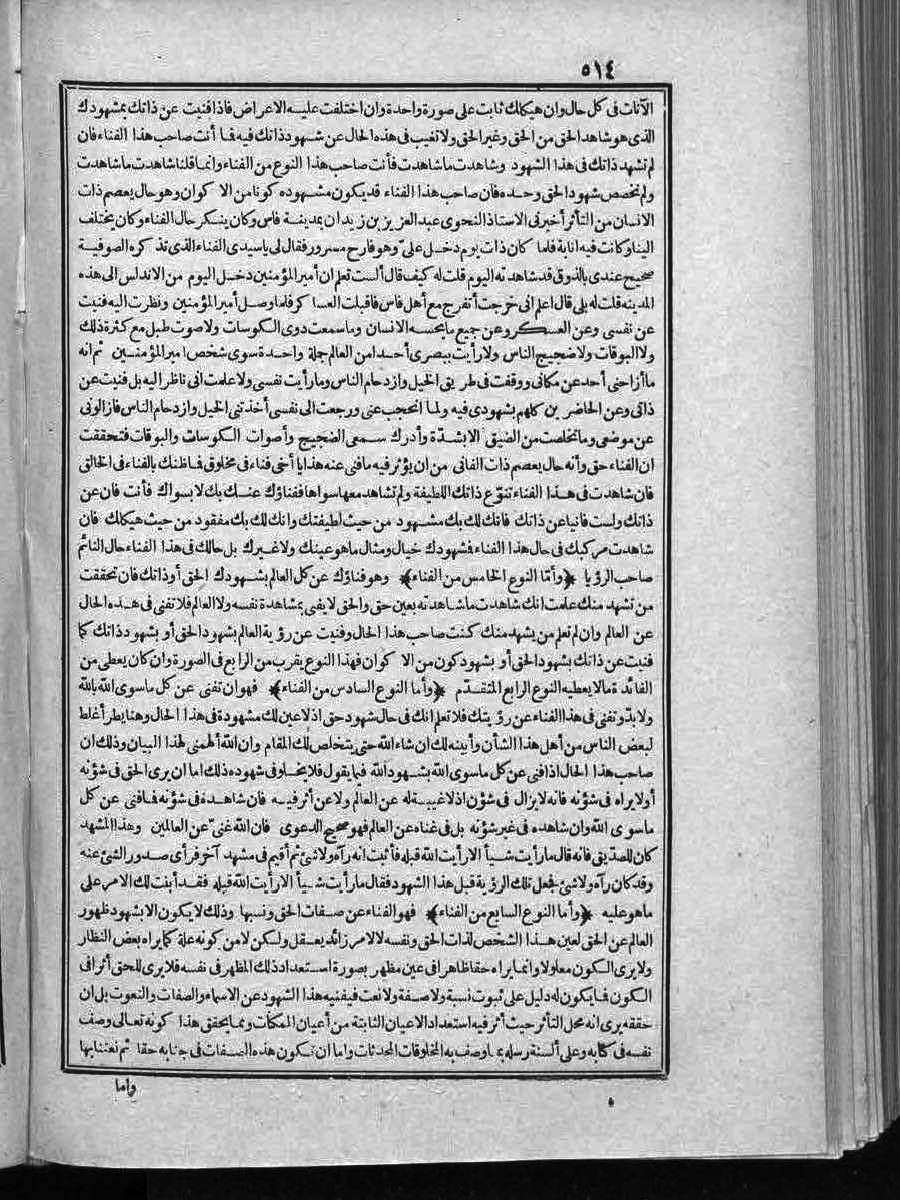 ٥١٤
الآنات فى كل حال وان هيكلك ثابت على صورة واحدة وان اختلفت عليه الاعراض فاذا فنيت عن ذاتك بمشهودك
الذى هو شاهد الحق من الحق وغير الحق ولا تغيب فى هذه الحال عن شهود ذاتك فيه فما أنت صاحب هذا الفناء فان
لم تشهد ذاتك فى هذا الشهود وشاهدت ما شاهدت فأنت صاحب هذا النوع من الفناء وانما قلنا شاهدت ما شاهدت
ولم نخصص شهود الحق وحده فان صاحب هذا الفناء قد يكون مشهوده كونا من الاكوان وهو حال يعصم ذات
الانسان من التأثر أخبرنى الاستاذ النحوى عبد العزيز بن زيدان بمدينة فاس وكان ينكر حال الفناء وكان يختلف
الينا وكانت فيه انابة فلما كان ذات يوم دخل علىّ وهو فارح مسرور فقال لى ياسيدى الفناء الذى تذكره الصوفية
صحيح عندى بالذوق قد شاهدته اليوم قلت له كيف قال ألست تعلم ان أمير المؤمنين دخل اليوم من الاندلس الى هذه
المدينه قلت له بلى قال اعلم انى خرجت أتفرج مع أهل فاس فاقبلت العساكر فلما وصل أمير المؤمنين ونظرت اليه فنيت
عن نفسى وعن العسكر وعن جميع ما يحسه الانسان وما سمعت دوى الكوسات ولا صوت طبل مع كثرة ذلك
ولا البوقات ولا ضجيج الناس ولا رأيت ببصرى أحدا من العالم جملة واحدة سوى شخص امير المؤمنين ثم انه
ما أزاحنى أحد عن مكانى ووقفت فى طريق الخيل وازدحام الناس وما رأيت نفسى ولا علمت انى ناظر اليه بل فنيت عن
ذاتى وعن الحاضرين كلهم بشهودى فيه ولما انحجب عنى ورجعت الى نفسى أخذتنى الخيل وازدحام الناس فازالونى
عن موضعى وما تخلصت من الضيق الا بشدّة وأدرك سمعى الضجيج وأصوات الكوسات والبوقات فتحققت
ان الفناء حق وأنه حال يعصم ذات الفانى من ان يؤثر فيه ما فنى عنه هذا يا أخى فناء فى مخلوق فما ظنك بالفناء فى الخالق
فان شاهدت فى هذا الفناء تنوّع ذاتك اللطيفة ولم تشاهد معها سواها ففناؤك عنك بك لا بسواك فأنت فان عن
ذاتك ولست فانيا عن ذاتك فانك لك بك مشهود من حيث لطيفتك وانك لك بك مفقود من حيث هيكلك فان
شاهدت مركبك فى حال هذا الفناء فشهودك خيال ومثال ما هو عينك ولا غيرك بل حالك فى هذا الفناء حال النائم
صاحب الرؤيا ﴿وأمّا النوع الخامس من الفناء﴾ وهو فناؤك عن كل العالم بشهودك الحق أو ذاتك فان تحققت
من تشهد منك علمت انك شاهدت ما شاهدته بعين حق والحق لا يفنى بمشاهدة نفسه ولا العالم فلا تفنى فى هذه الحال
عن العالم وان لم تعلم من يشهد منك كنت صاحب هذا الحال وفنيت عن رؤية العالم بشهود الحق أو بشهود ذاتك كما
فنيت عن ذاتك بشهود الحق أو بشهود كون من الاكوان فهذا النوع يقرب من الرابع فى الصورة وان كان يعطى من
الفائدة ما لا يعطيه النوع الرابع المتقدّم ﴿وأما النوع السادس من الفناء﴾ فهو ان تفنى عن كل ما سوى الله بالله
ولا بدّ وتفنى فى هذا الفناء عن رؤيتك فلا تعلم انك فى حال شهود حق اذ لا عين لك مشهودة فى هذا الحال وهنا يطرأ غلط
لبعض الناس من أهل هذا الشأن وأبينه لك ان شاء الله حتى يتخلص لك المقام وان الله ألهمنى لهذا البيان وذلك ان
صاحب هذا الحال اذا فنى عن كل ما سوى الله بشهود الله فيما يقول فلا يخلو فى شهوده ذلك اما ان يرى الحق فى شؤنه
أولا يراه فى شؤنه فانه لا يزال فى شؤن اذ لا غيبة له عن العالم ولا عن أثر فيه فان شاهده فى شؤنه فما فنى عن كل
ما سوى الله وان شاهده فى غير شؤنه بل فى غناه عن العالم فهو صحيح الدعوى فان الله غنىّ عن العالمين وهذا المشهد
كان للصدّيق فانه قال ما رأيت شيأ الا رأيت الله قبله فأثبت انه رآه ولا شئ ثم أقيم فى مشهد آخر فرأى صدور الشئ عنه
وقد كان رآه ولا شئ فجعل تلك الرؤية قبل هذا الشهود فقال ما رأيت شيأ الا رأيت الله قبله فقد أبنت لك الامر على
ما هو عليه ﴿وأما النوع السابع من الفناء﴾ فهو الفناء عن صفات الحق ونسبها وذلك لا يكون الا بشهود ظهور
العالم عن الحق لعين هذا الشخص لذات الحق ونفسه لا لامر زائد يعقل ولكن لا من كونه علة كما يراه بعض النظار
ولا يرى الكون معلولا وانما يراه حقا ظاهرا فى عين مظهر بصورة استعداد ذلك المظهر فى نفسه فلا يرى للحق أثرا فى
الكون فما يكون له دليل على ثبوت نسبة ولا صفة ولا نعت فيفنيه هذا الشهود عن الاسماء والصفات والنعوت بل ان
حققه يرى انه محل التأثر حيث أثر فيه استعداد الاعيان الثابتة من أعيان الممكنات ومما يحقق هذا كونه تعالى وصف
نفسه فى كتابه وعلى ألسنة رسله بما وصف به المخلوقات المحدثات واما ان تكون هذه الصفات فى جنابه حقا ثم نعتنا بها
واما